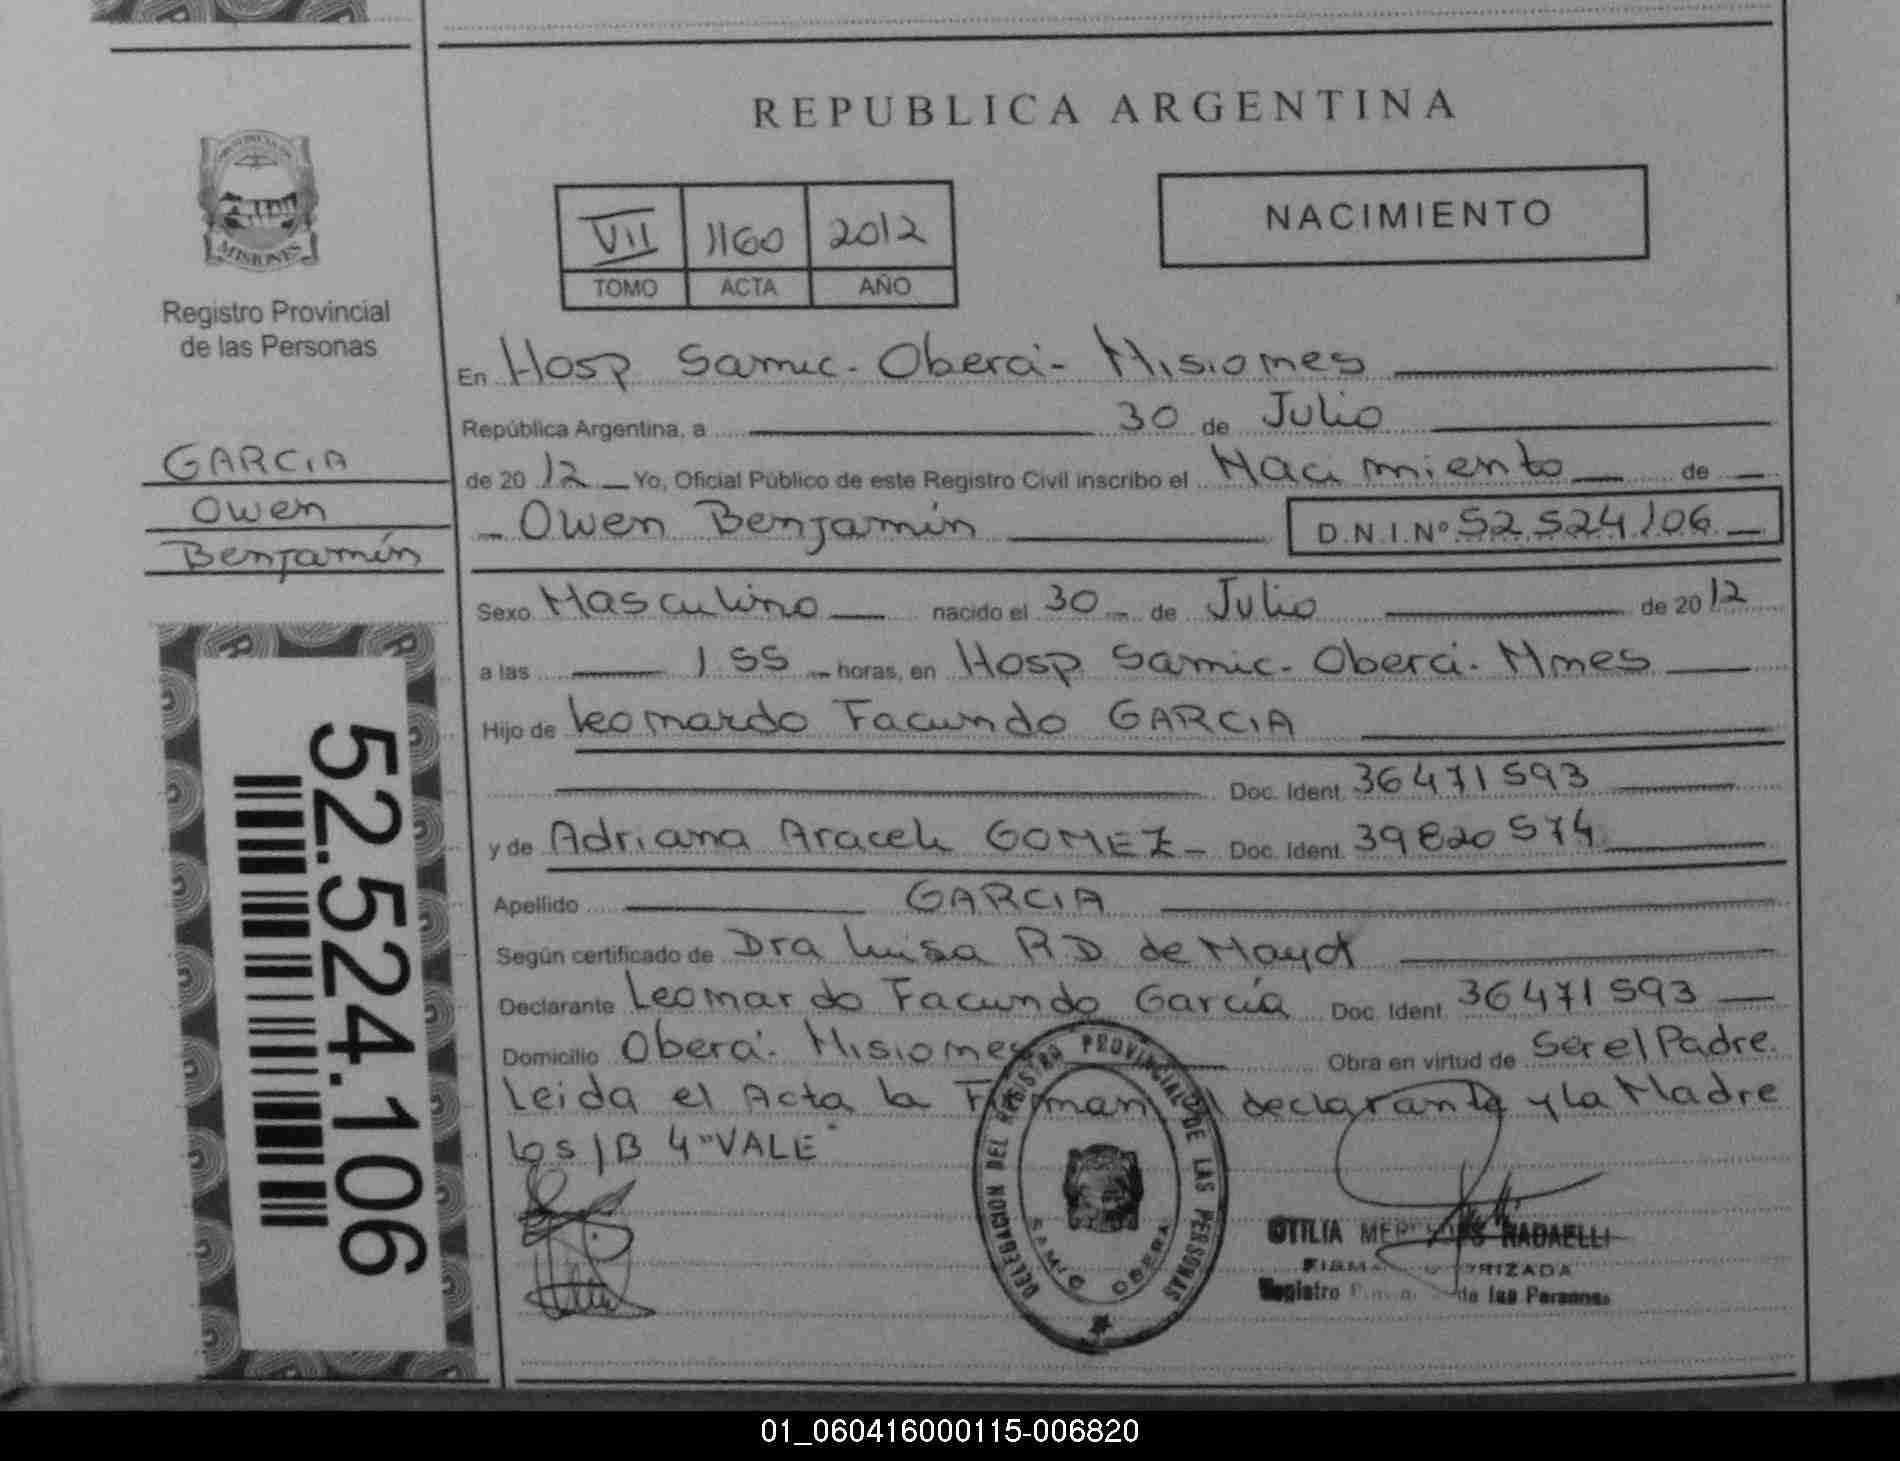 REPUBLICA ARGENTINA
VII 1160 2012
TOMO ACTA AÑO
NACIMIENTO
MISIONES
Registro Provincial
de las Personas
GARCIA
Owen
Benjamín
52.524.106
En Hosp Samic - Oberá - Misiones
República Argentina, a 30 de Julio
de 2012 Yo, Oficial Público de este Registro Civil inscribo el Nacimiento de
Owen Benjamín D.N.I.Nº 52.524.106
Sexo Masculino nacido el 30 de Julio de 2012
a las 1 55 horas, en Hosp Samic - Oberá - Mnes
Hijo de Leonardo Facundo GARCIA
Doc. Ident. 36471593
y de Adriana Araceli GOMEZ Doc. Ident. 39820574
Apellido GARCIA
Según certificado de Dra Luisa R D de
Declarante Leonardo Facundo García Doc. Ident. 36471593
Domicilio Oberá - Misiones Obra en virtud de Ser el Padre.
Leida el Acta la declarante y la Madre
"VALE"
DELEGACION DEL REGISTRO PROVINCIAL DE LAS PERSONAS
SAMIC OBERA
OTILIA RADAELLI
Registro de las Personas
01_060416000115-006820